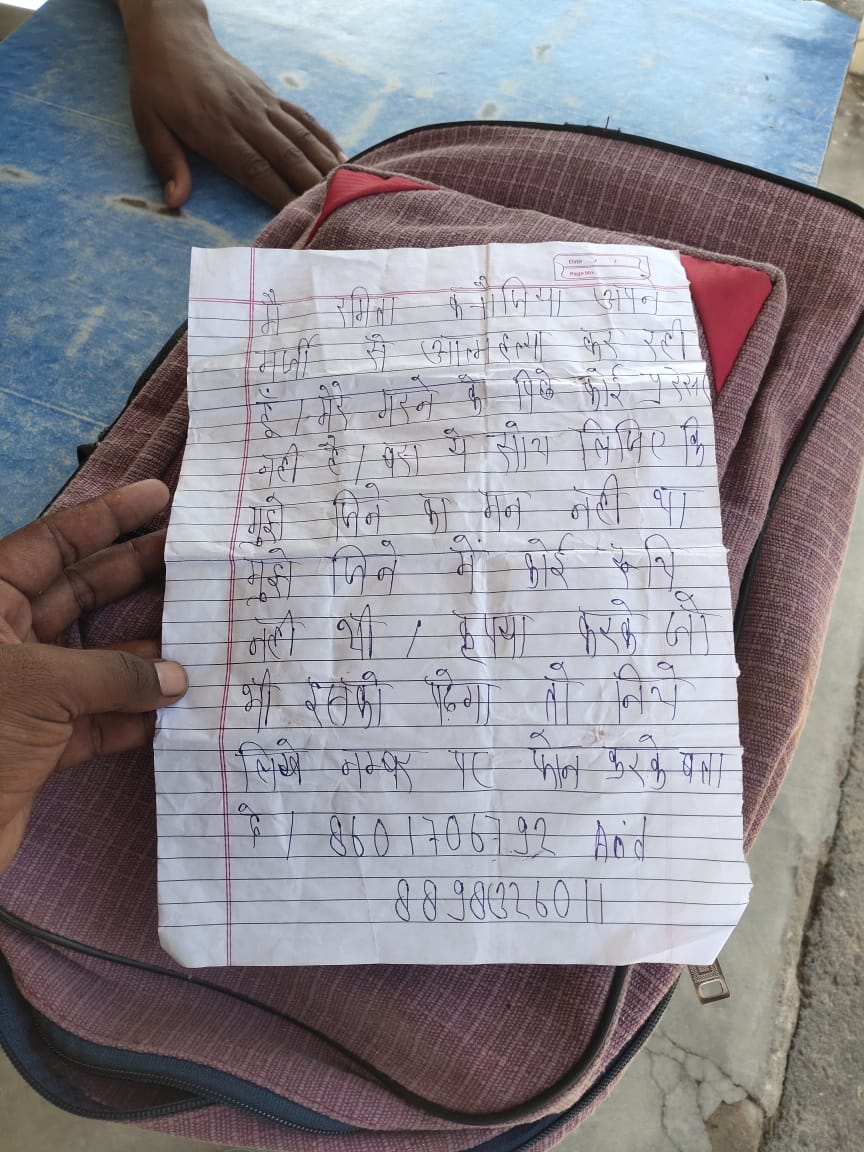 Date / /
Page No.
मै रमिता कनौजिया अपने
मर्जी से आत्महत्या कर रही
हूँ। मेरे मरने के पिछे कोई
नही है। बस ये सोच लिजिए कि
मुझे जिने का मन नही था
मुझे जिने में कोई रूचि
नही थी। कृपया करके जो
भी इसको पढेगा तो निचे
लिखे नम्बर पर फोन करके बता
दे। 8601706792 And
88983326011